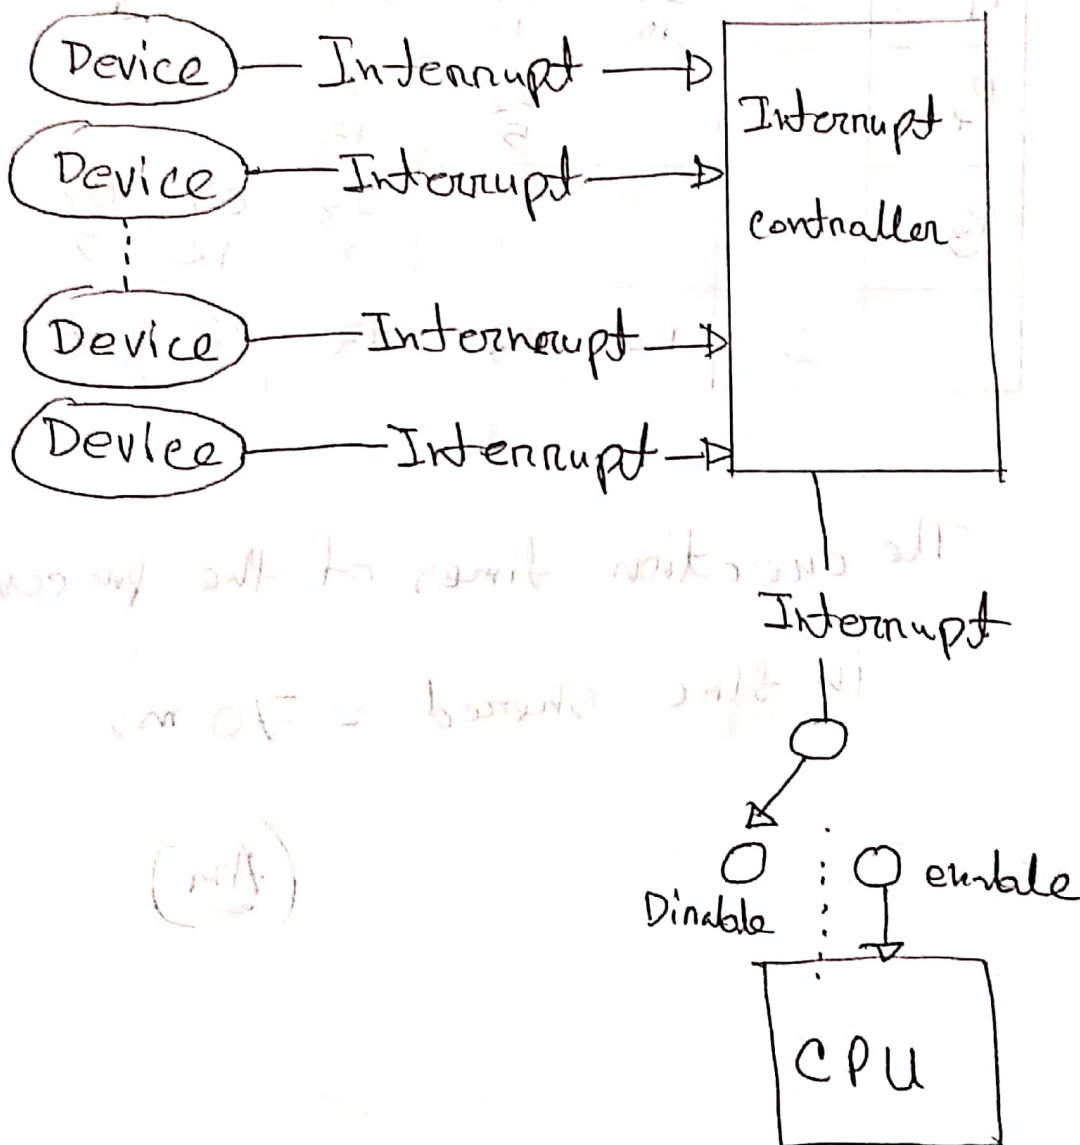 Device Interrupt
Device Interrupt
Device Interrupt
Device Interrupt
Interrupt
controller
Interrupt
Disable
enable
CPU